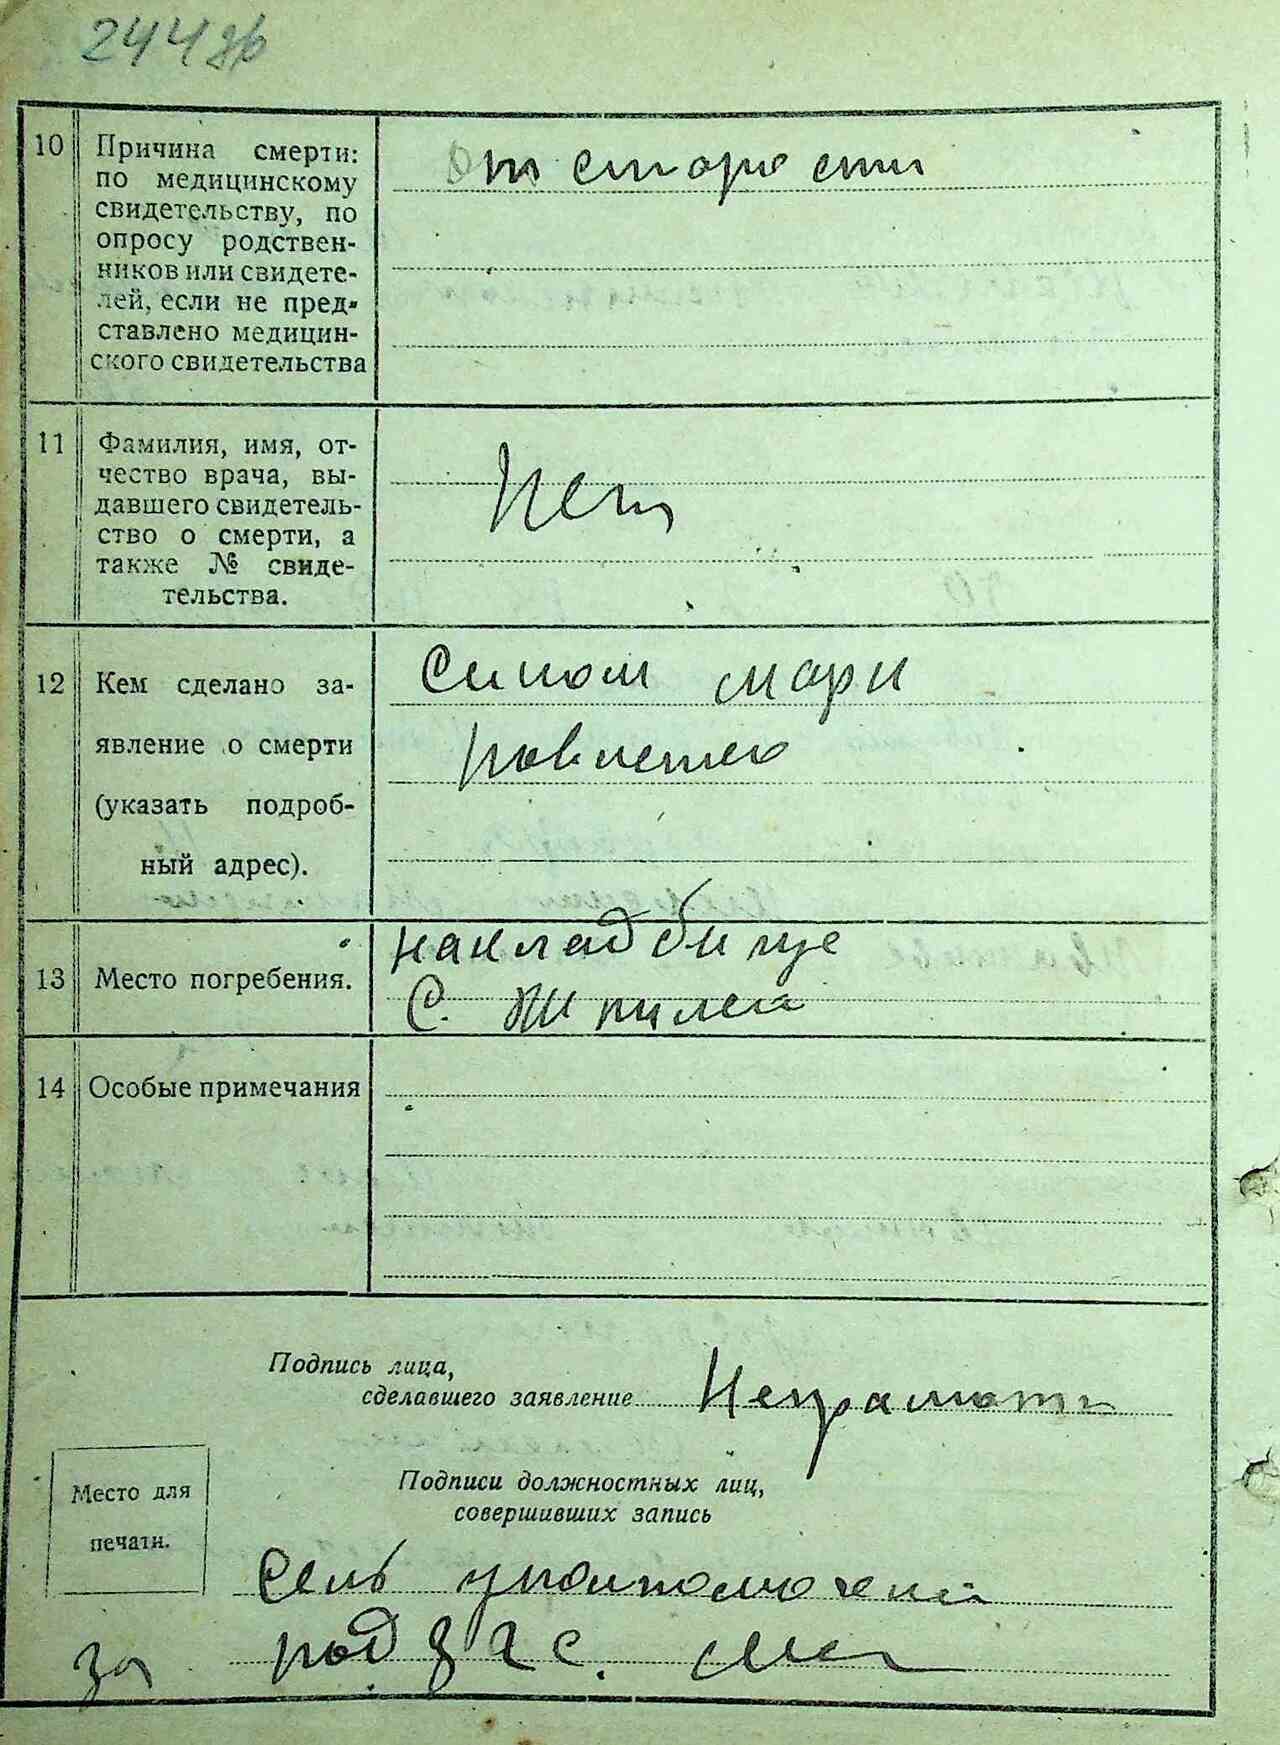 244 зв
10 Причина смерти: От старо сти
по медицинскому
свидетельству, по
опросу родствен-
ников или свидете-
лей, если не пред-
ставлено медицин-
ского свидетельства
11 Фамилия, имя, от-
чество врача, вы- Нет
давшего свидетель-
ство о смерти, а
также № свиде-
тельства.
12 Кем сделано за- Сином мари
явление о смерти
(указать подроб-
ный адрес).
накладбище
13 Место погребения.
С.
14 Особые примечания
Подпись лица,
сделавшего заявление Неграмотн
Место для
печати.
Подписи должностных лиц,
совершивших запись
Сель
за